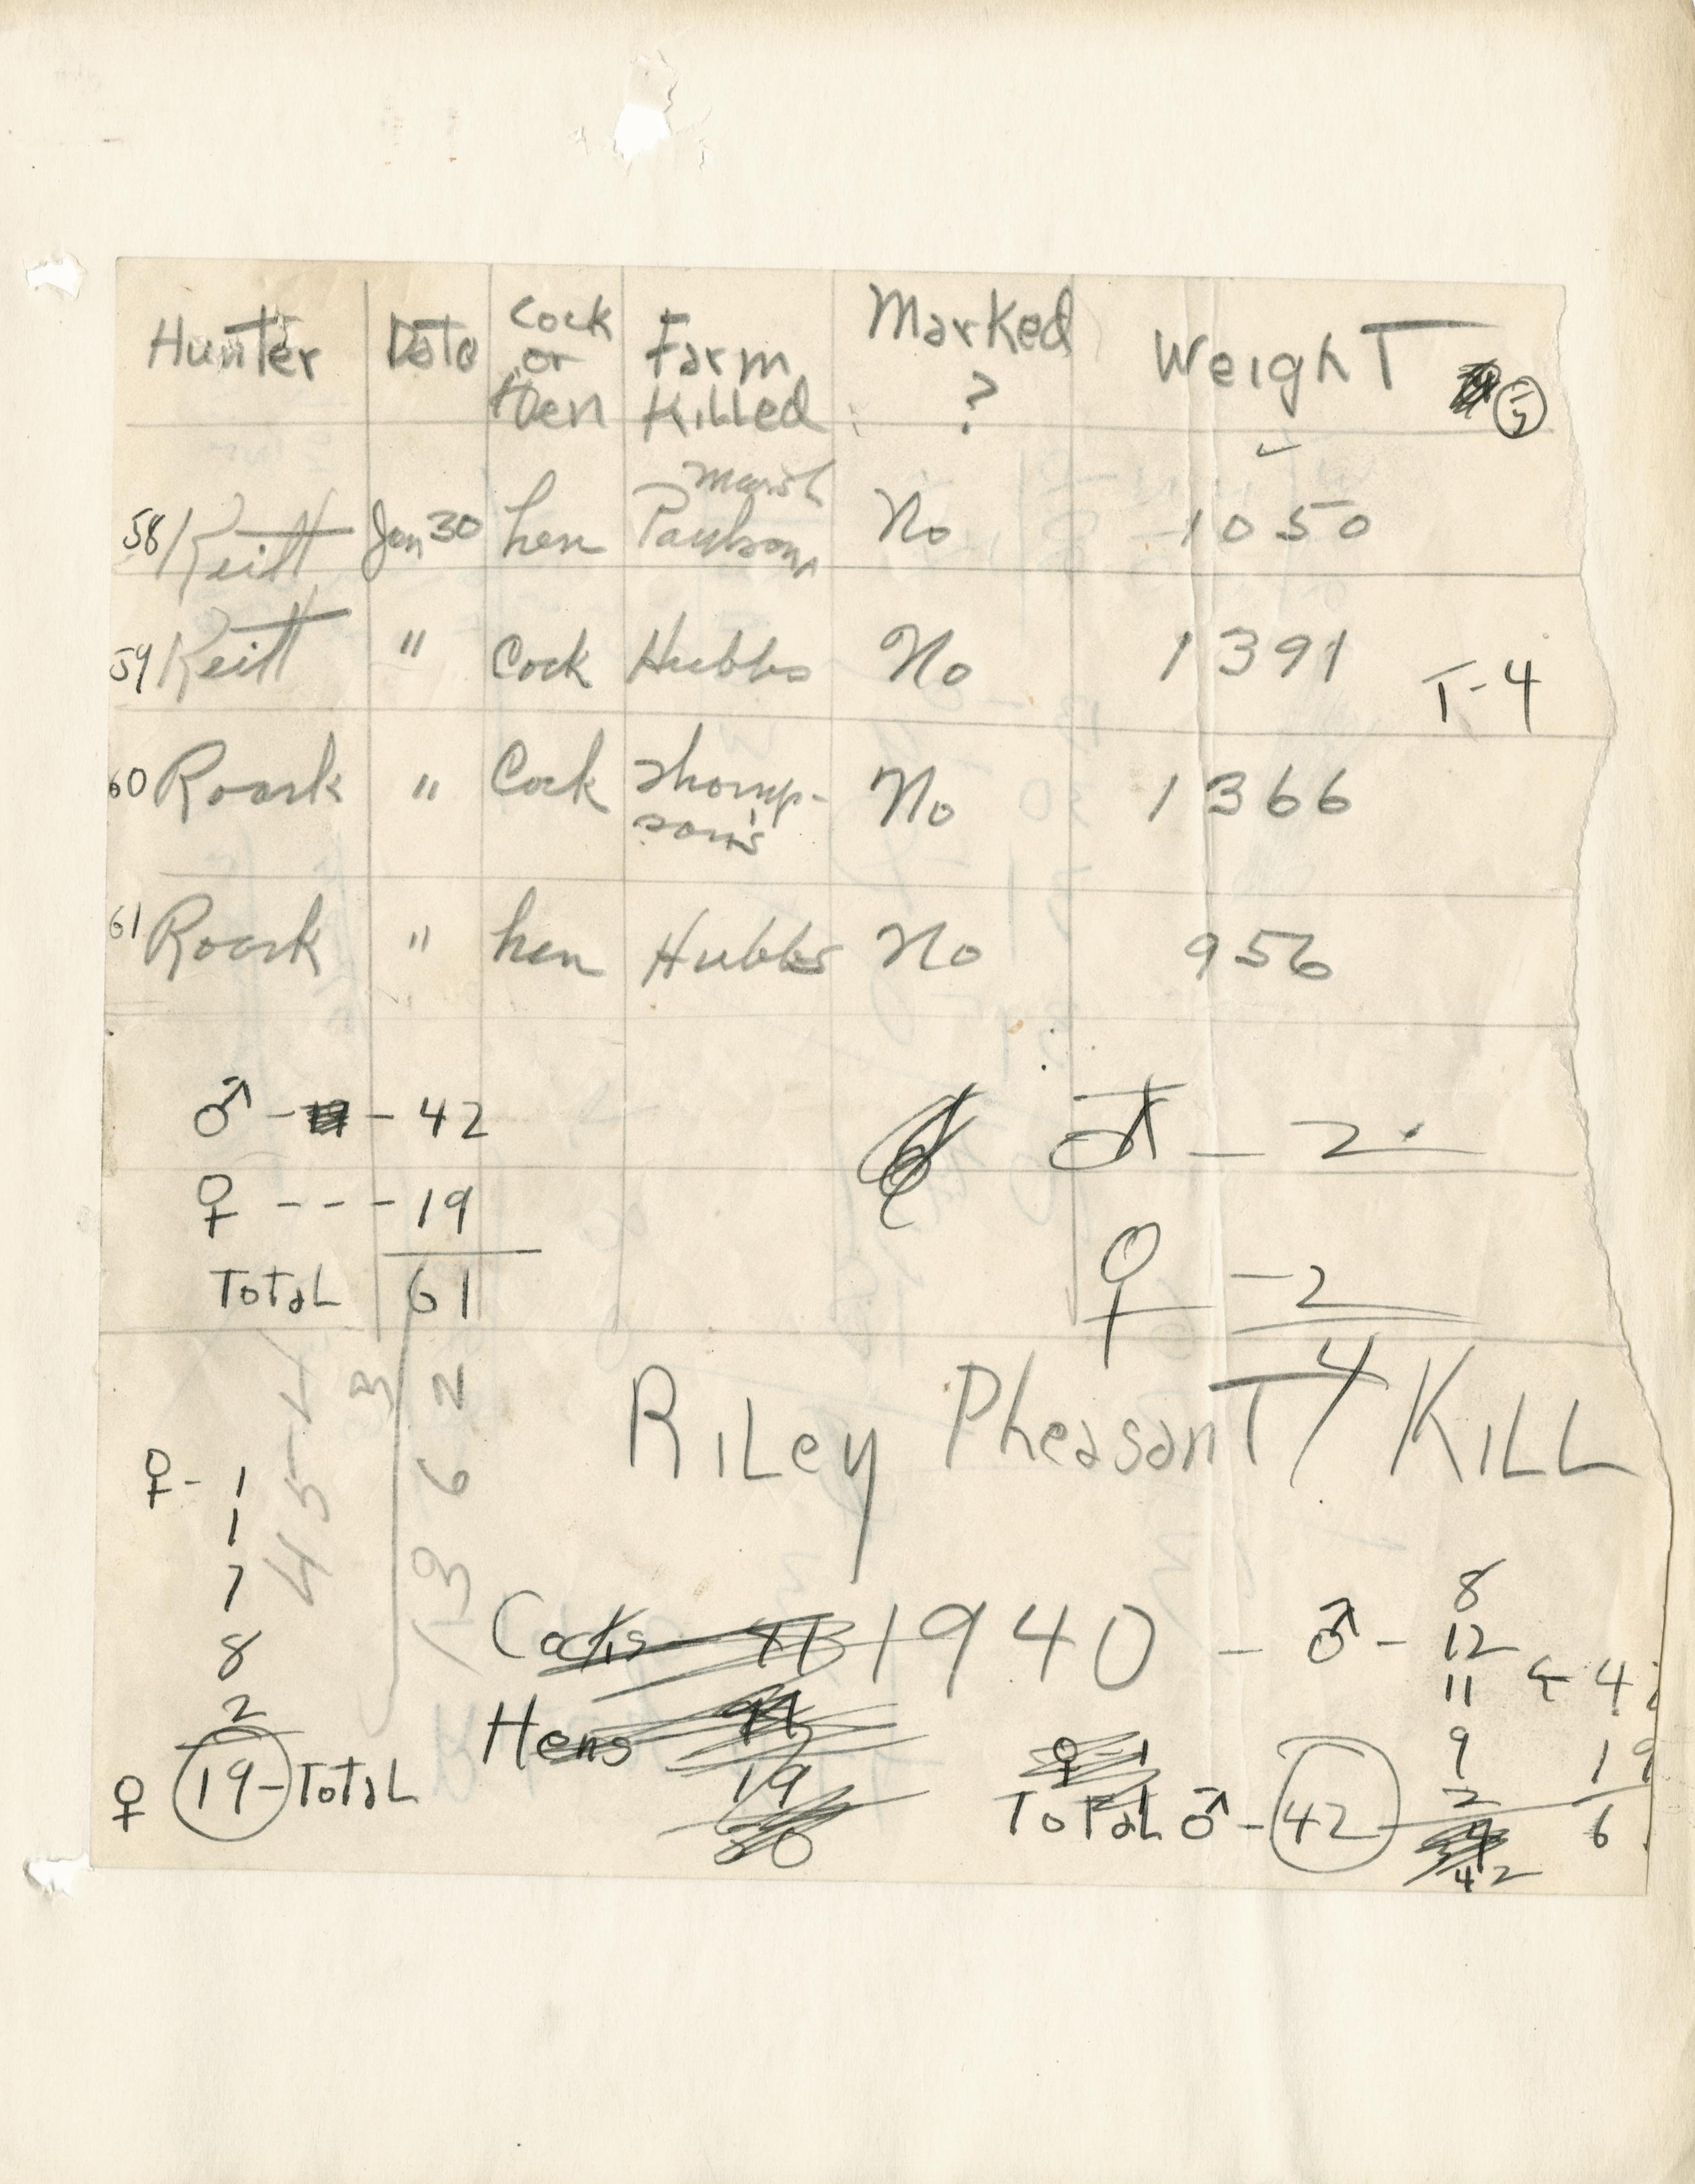 Hunter Date Cock or Hen Farm Killed Marked ? Weight
58 Keitt Jan 30 hen Marsh Paulsons No 1050
59 Keitt " Cock Hubbs No 1391 T-4
60 Roark " Cock Thomp-
son's No 1366
61 Roark " hen Hubbs No 956
♂ - - 42 ♂ - 2
♀ - - - 19 ♀ - 2
Total 61 4
Riley Pheasant Kill
1940 - ♂ - 8
12
11
9
2
42
Total ♂ - 42
♀ - 1
1
7
8
2
♀ 19 - Total
Cocks
Hens
19
19
6
454
3
1362